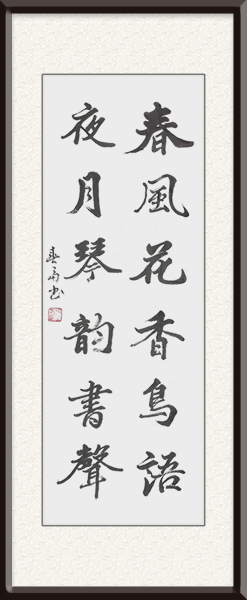 春風花香鳥語
夜月琴韵書聲